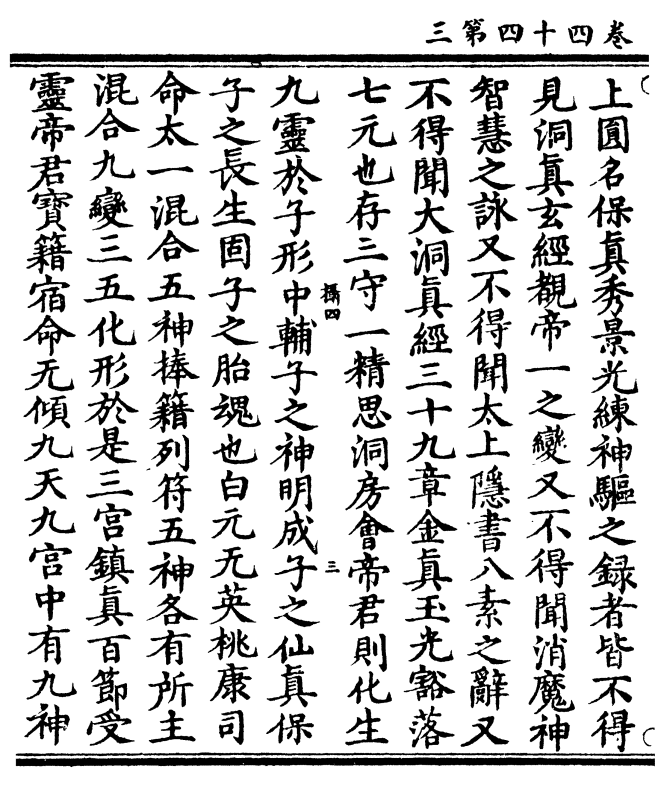 卷四十四第三
上圓名保眞秀景光練神驅之録者皆不得
見洞眞玄經觀帝一之變又不得聞消魔神
智慧之詠又不得聞太上隱書八素之辭又
不得聞大洞眞經三十九章金眞玉光豁落
七元也存三守一精思洞房會帝君則化生
攝四 三
九靈於子形中輔子之神明成子之仙眞保
子之長生固子之胎魂也白元无英桃康司
命太一混合五神捧籍列符五神各有所主
混合九變三五化形於是三宮鎮眞百節受
靈帝君寶籍宿命无傾九天九宮中有九神